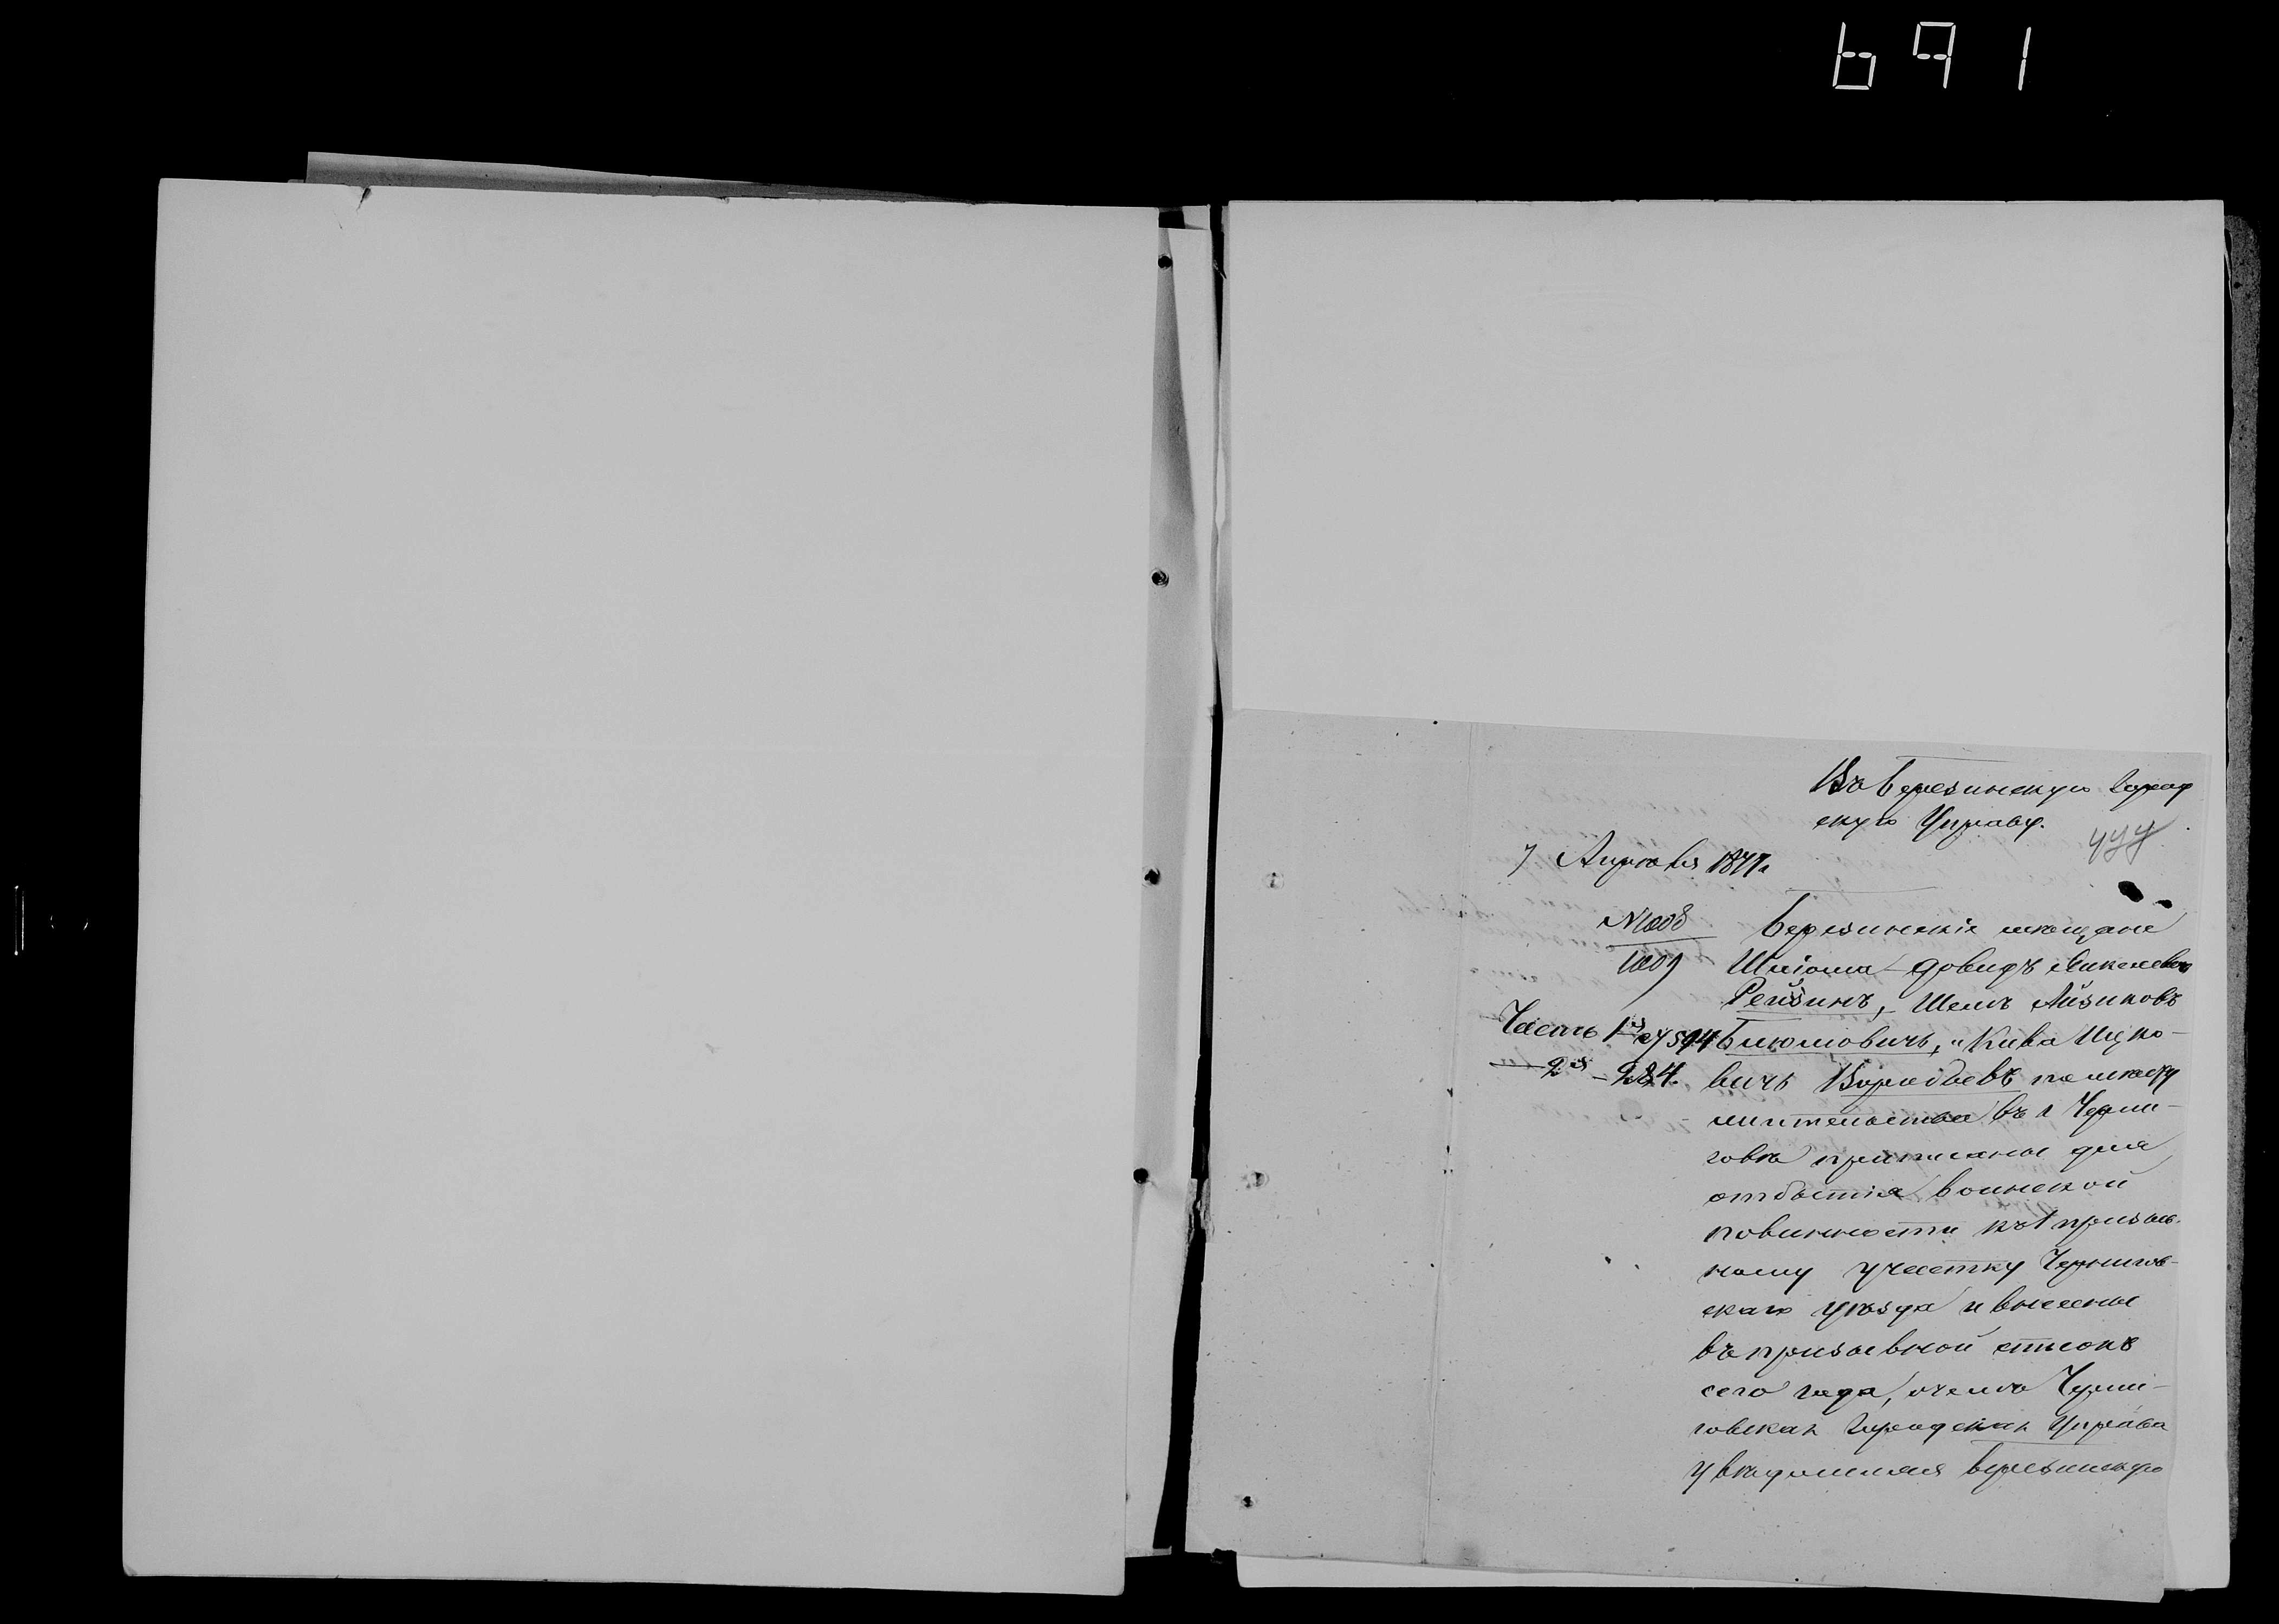 691
Въ Березинскую Город
скую Управу.
477
7 Апрѣля 1877 г.
№ 1008
1009
Березинскіе мѣщане
Шліома-Довидъ
Рейзинъ, Шемъ Айзиковъ
Часть 1я
Блюмовичъ, и Кива Ицко-
2я - 284.
вичъ Воробьевъ по мѣсту
жительства въ г. Черни-
говѣ приписаны для
отбытія воинской
повинности къ 1 призыв-
ному участку Чернигов-
скаго уѣзда и внесены
въ призывной списокъ
сего года, о чемъ Черни-
говская Городская Управа
увѣдомляя Березинскую